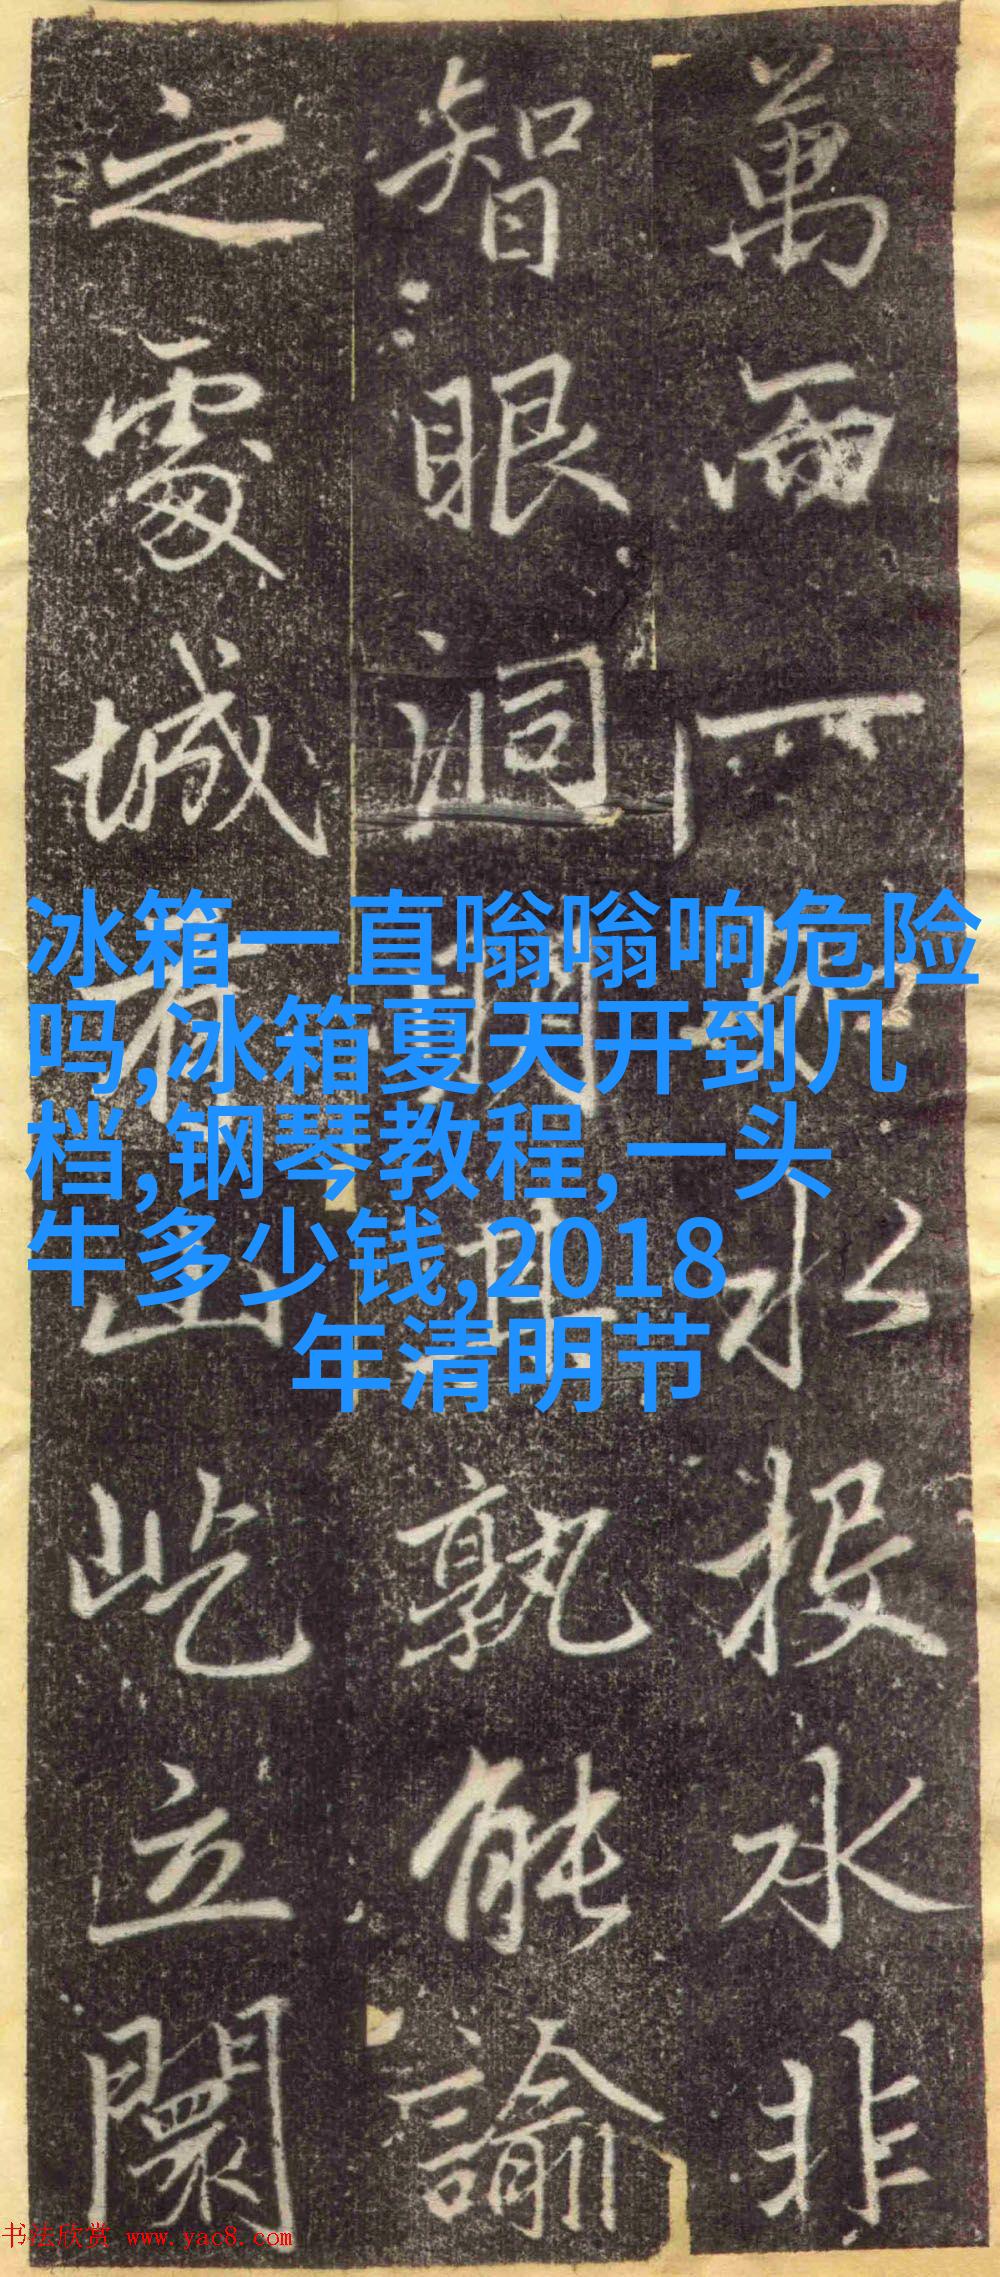 萬而一水投水非
智眼洞孰能諭
之處城有山屹立闤
冰箱一直嗡嗡响危险
吗,冰箱夏天开到几
档,钢琴教程,一头
牛多少钱,2018
年清明节
书法欣赏 www.yac8.com